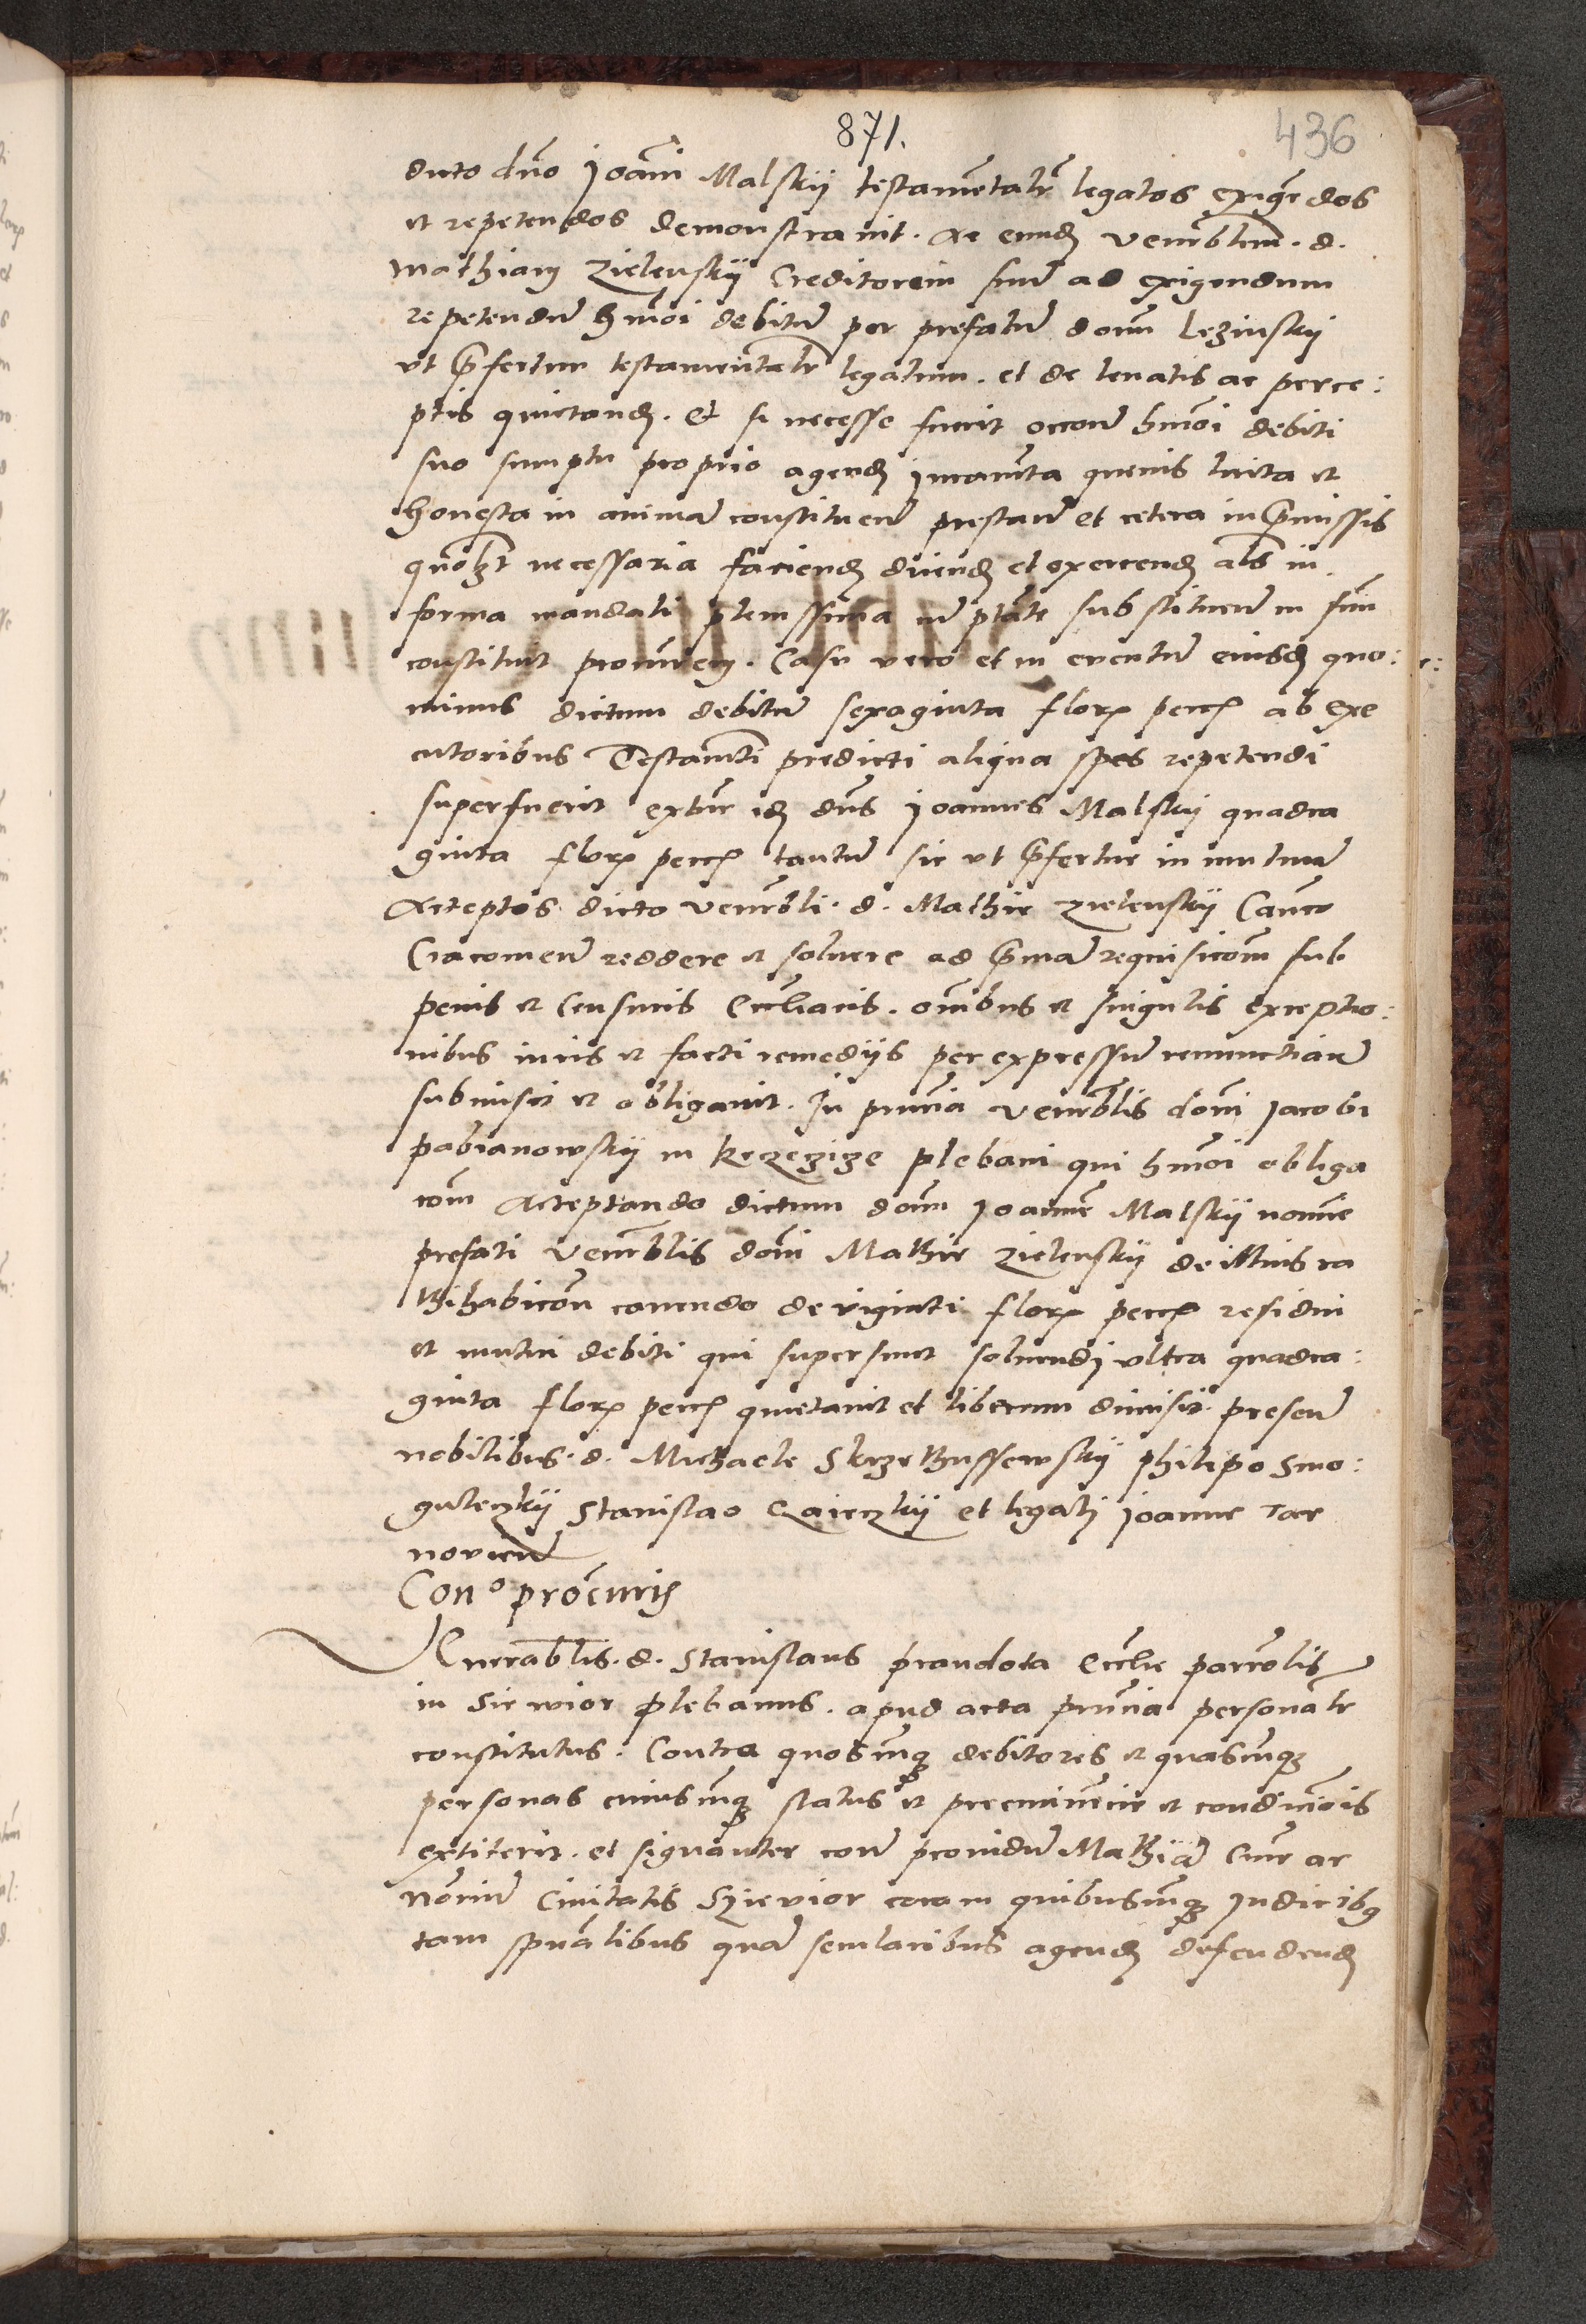 871.
436
dicto dno Joanni Malskij testamentalr legatos exigendos
et repetendos demonstrauit. Ac eund venerablem. d.
Mathiam Zielenskij Creditorem suu ad exigendum
repetendu hmoi debitu per prefatu donu Lezinskij
vt prefertur testamentalr legatum. et de leuatis ac perce:
ptis quietand. Et si necesse fuerit occone hmoi debiti
suo sumptu proprio agend juramta queuis licita et
honesta in animam constituen prestan et cetera in premissis
quolzt necessaria faciend dicend et exercend als in
forma mandati plenissima cu ptate substituen in suu
constituit procurem. Casu vero et in euentu eiusd quo:
minus dictum debitu sexaginta flor pecc ab exe
cutoribus Testamti predicti aliqua spes repetendi
superfuerit extunc id dns Joannes Malskij quadra
ginta flor pecc tantu sic vt prefertur in mutuu
Acceptos dicto venerbli. d. Mathie Zielenskij Canco
Cracouien reddere et soluere ad primam requisicom sub
penis et Censuris Eccliacis. omibus et singulis exceptio:
nibus iuris et facti remedijs per expressum renunctian
submisit et obligauit. In pntia venerblis domi Jacobi
Pabianowskij in Krzezize plebani qui hmoi obliga
com Acceptando dictum dom Joanne Malskij nomie
prefati venerblis domi Mathie Zielenskij de illius ra
tihabicom cauendo de viginti flor pecc residui
et mutui debiti qui supersunt soluendi vltra quadra:
ginta flor pecc quietauit et liberum dimisit. presen
nobilibus. d. Michaele Skrzethussewskij philipo Smo:
guleczkij Stanislao Czaieczkij et legali Joanne Tar
nouien
Con° procuris
Venerablis. d. Stanislaus prandota Ecclie parrolis
in Sirwior plebanus. apud acta pntia personalr
constitutus. Contra quoscunq debitores et quascunq
personas cuiuscunq status et preeminencie et condicionis
extiterit. et signanter con prouidu Mathia Ciue ac
notariu Ciuitatis Szievior coram quibuscunq Judicibq
tam spualibus qua secularibus agend defendend